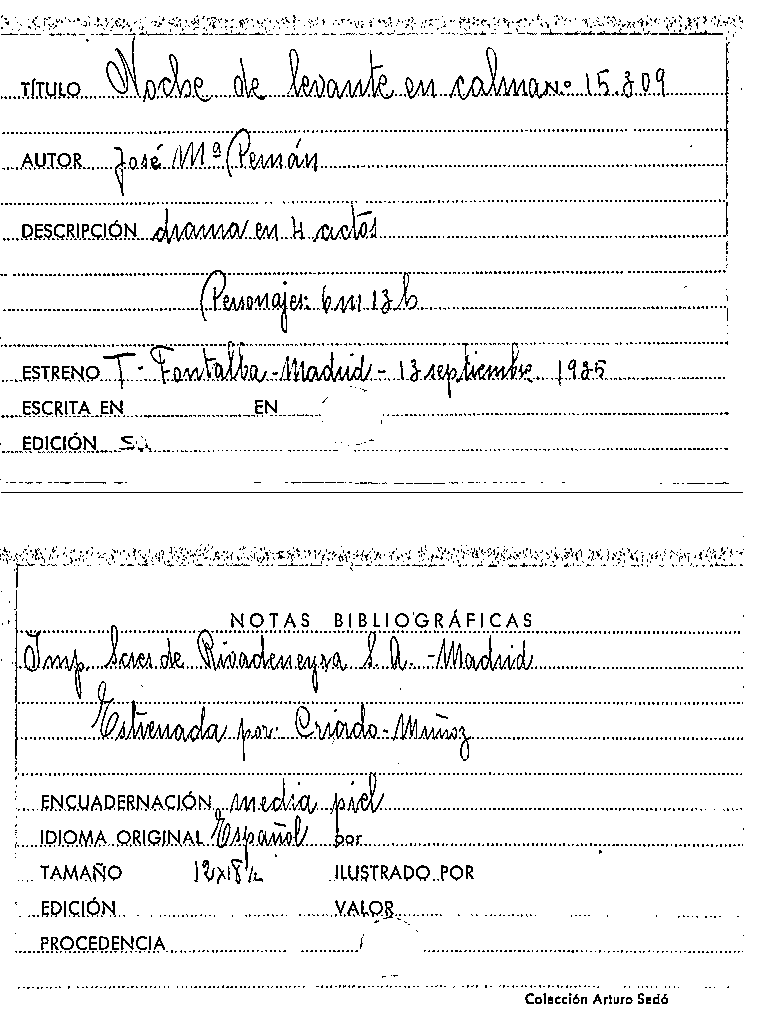 TÍTULO Noche de levante en calma N.º 15.309
AUTOR José Mª Pemán
DESCRIPCIÓN drama en 4 actos
Personajes: 6 m 13 h
ESTRENO T. Fontalba - Madrid - 13 septiembre 1935
ESCRITA EN EN
EDICIÓN
NOTAS BIBLIOGRÁFICAS
Imp. Scres de Rivadeneyra S. A. - Madrid
Estrenada por: Criado-Muñoz
ENCUADERNACIÓN media piel
IDIOMA ORIGINAL Español por
TAMAÑO 12x18½ ILUSTRADO POR
EDICIÓN VALOR
PROCEDENCIA
Colección Arturo Sedó